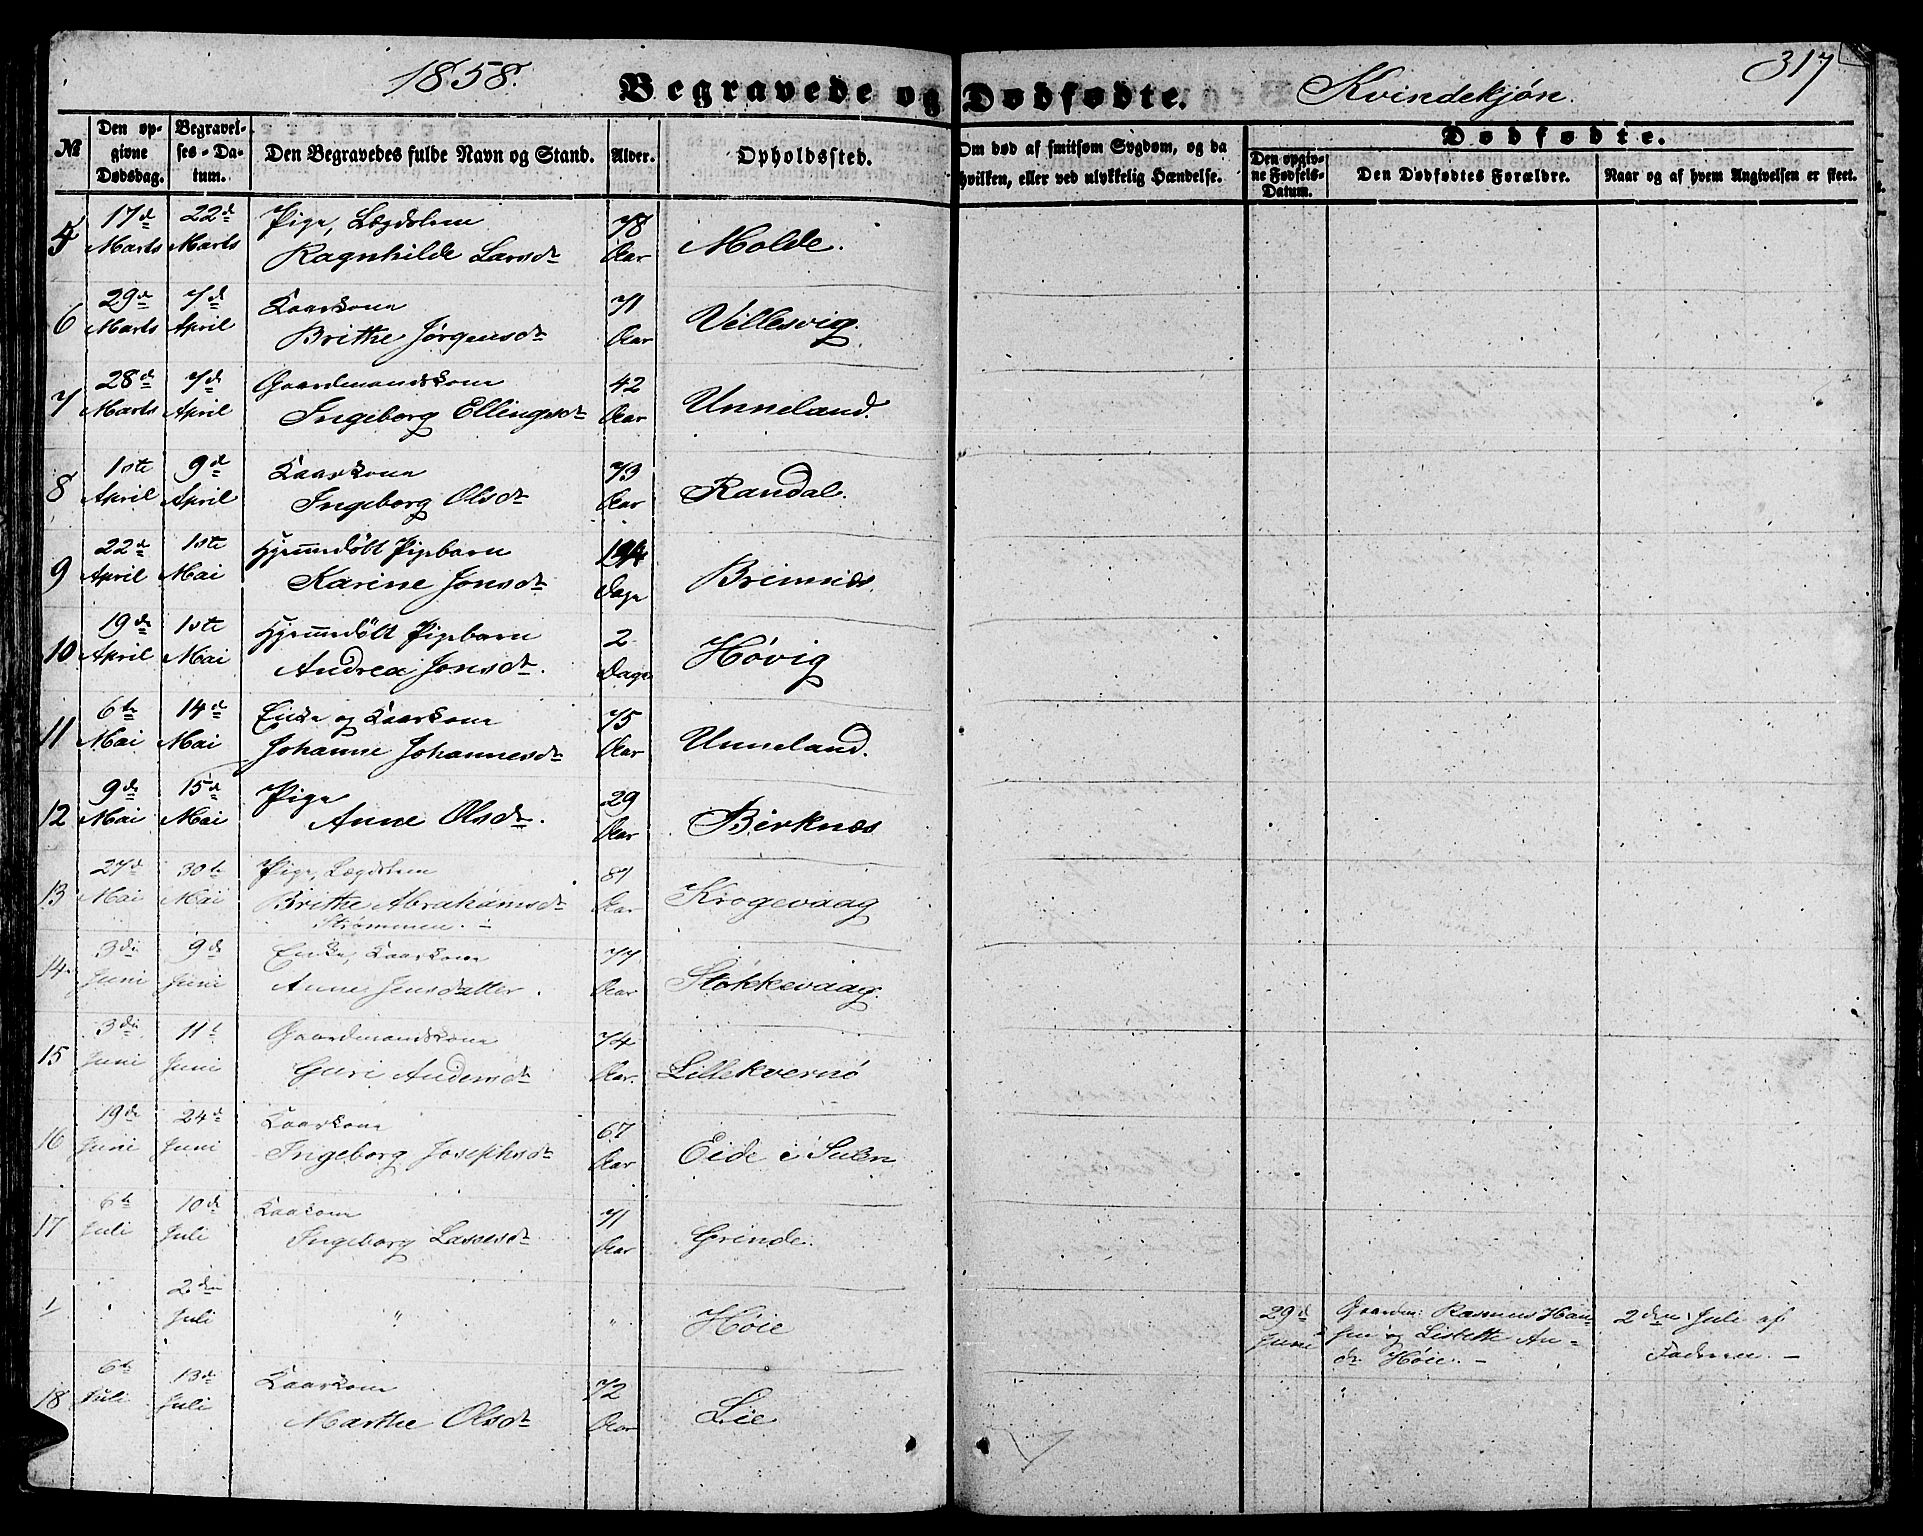 1858.
Begravede og Dødfødte.
Kvindekjøn.
317
№
Den opgivne Dødsdag.
Begravelses-Datum.
Den Begravedes fulde Navn og Stand.
Alder.
Opholdssted.
Om død af smitsom Sygdom, og da hvilken, eller ved ulykkelig Hændelse.
Dødfødte.
Den opgivne Fødsels-Datum.
Den Dødfødtes Forældre.
Naar og af hvem Angivelsen er skeet.
5 17de Marts 22de Marts Pige, Lægdslem
Ragnhilde Larsdtr 78 Aar Molde.
6 29de Marts 7de April Kaarkone
Brithe Jørgensdtr 71 Aar Villesvig.
7 28de Marts 7de April Gaardmandskone
Ingeborg Ellingsdtr 42 Aar Unneland.
8 1ste April 9de April Kaarkone
Ingeborg Olsdtr 73 Aar Randal.
9 22de April 1ste Mai Hjemmedøbt Pigebarn
Karine Jonsdtr 14 Dage Brimnæs.
10 19de April 1ste Mai Hjemmedøbt Pigebarn
Andrea Jonsdtr. 2 Dage Høvig
11 6te Mai 14de Mai Enke og Kaarkone
Johanne Johannesdtr 75 Aar Unneland.
12 9de Mai 15de Mai Pige
Anne Olsdtr. 29 Aar Birknæs
13 27de Mai 30te Mai Pige, Lægdslem
Brithe Abrahamsdtr 87 Aar Krogevaag
Strømmen. -
14. 3die Juni 9de Juni Enke, Kaarkone
Anne Jensdatter. 77 Aar Stokkevaag.
15 3die Juni 11te Juni Gaardmandskone
Guri Andersdtr 74 Aar. Lillekvernø
16 19de Juni 24de Juni Kaarkone
Ingeborg Josephsdtr 67 Aar Eide i Sulen
17 6te Juli 10de Juli Kaarkone
Ingeborg Lassesdtr 71 Aar Grinde.
1/ " 2den Juli " " Høie
29de Juni
Gaardm: Rasmus Han-
sen og Lisbethe An-
dr Høie. -
2den Juli af
Faderen. -
18 6te Juli 13de Juli Kaarkone
Marthe Olsdtr 72 Aar Lie